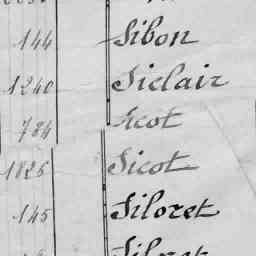 144 Sibon
1240 Siclair
784 Sicot
1825 Sicot
145 Siloret
Siloret